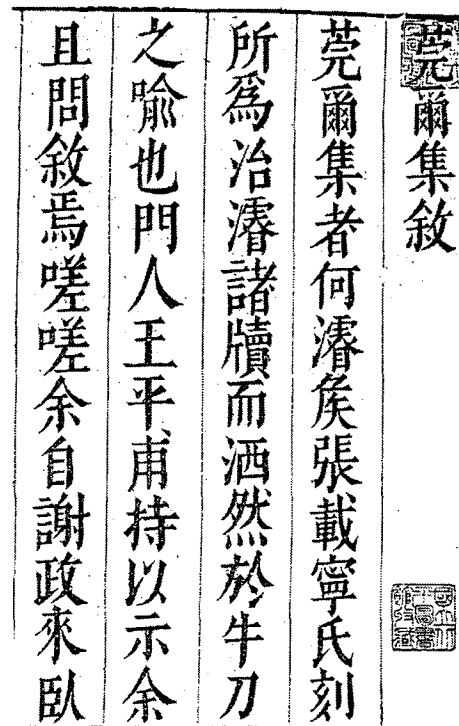 莞爾集敘
莞爾集者何濬矦張載寧氏刻
所爲治濬諸牘而洒然於牛刀
之喻也門人王平甫持以示余
且問敘焉嗟嗟余自謝政來臥